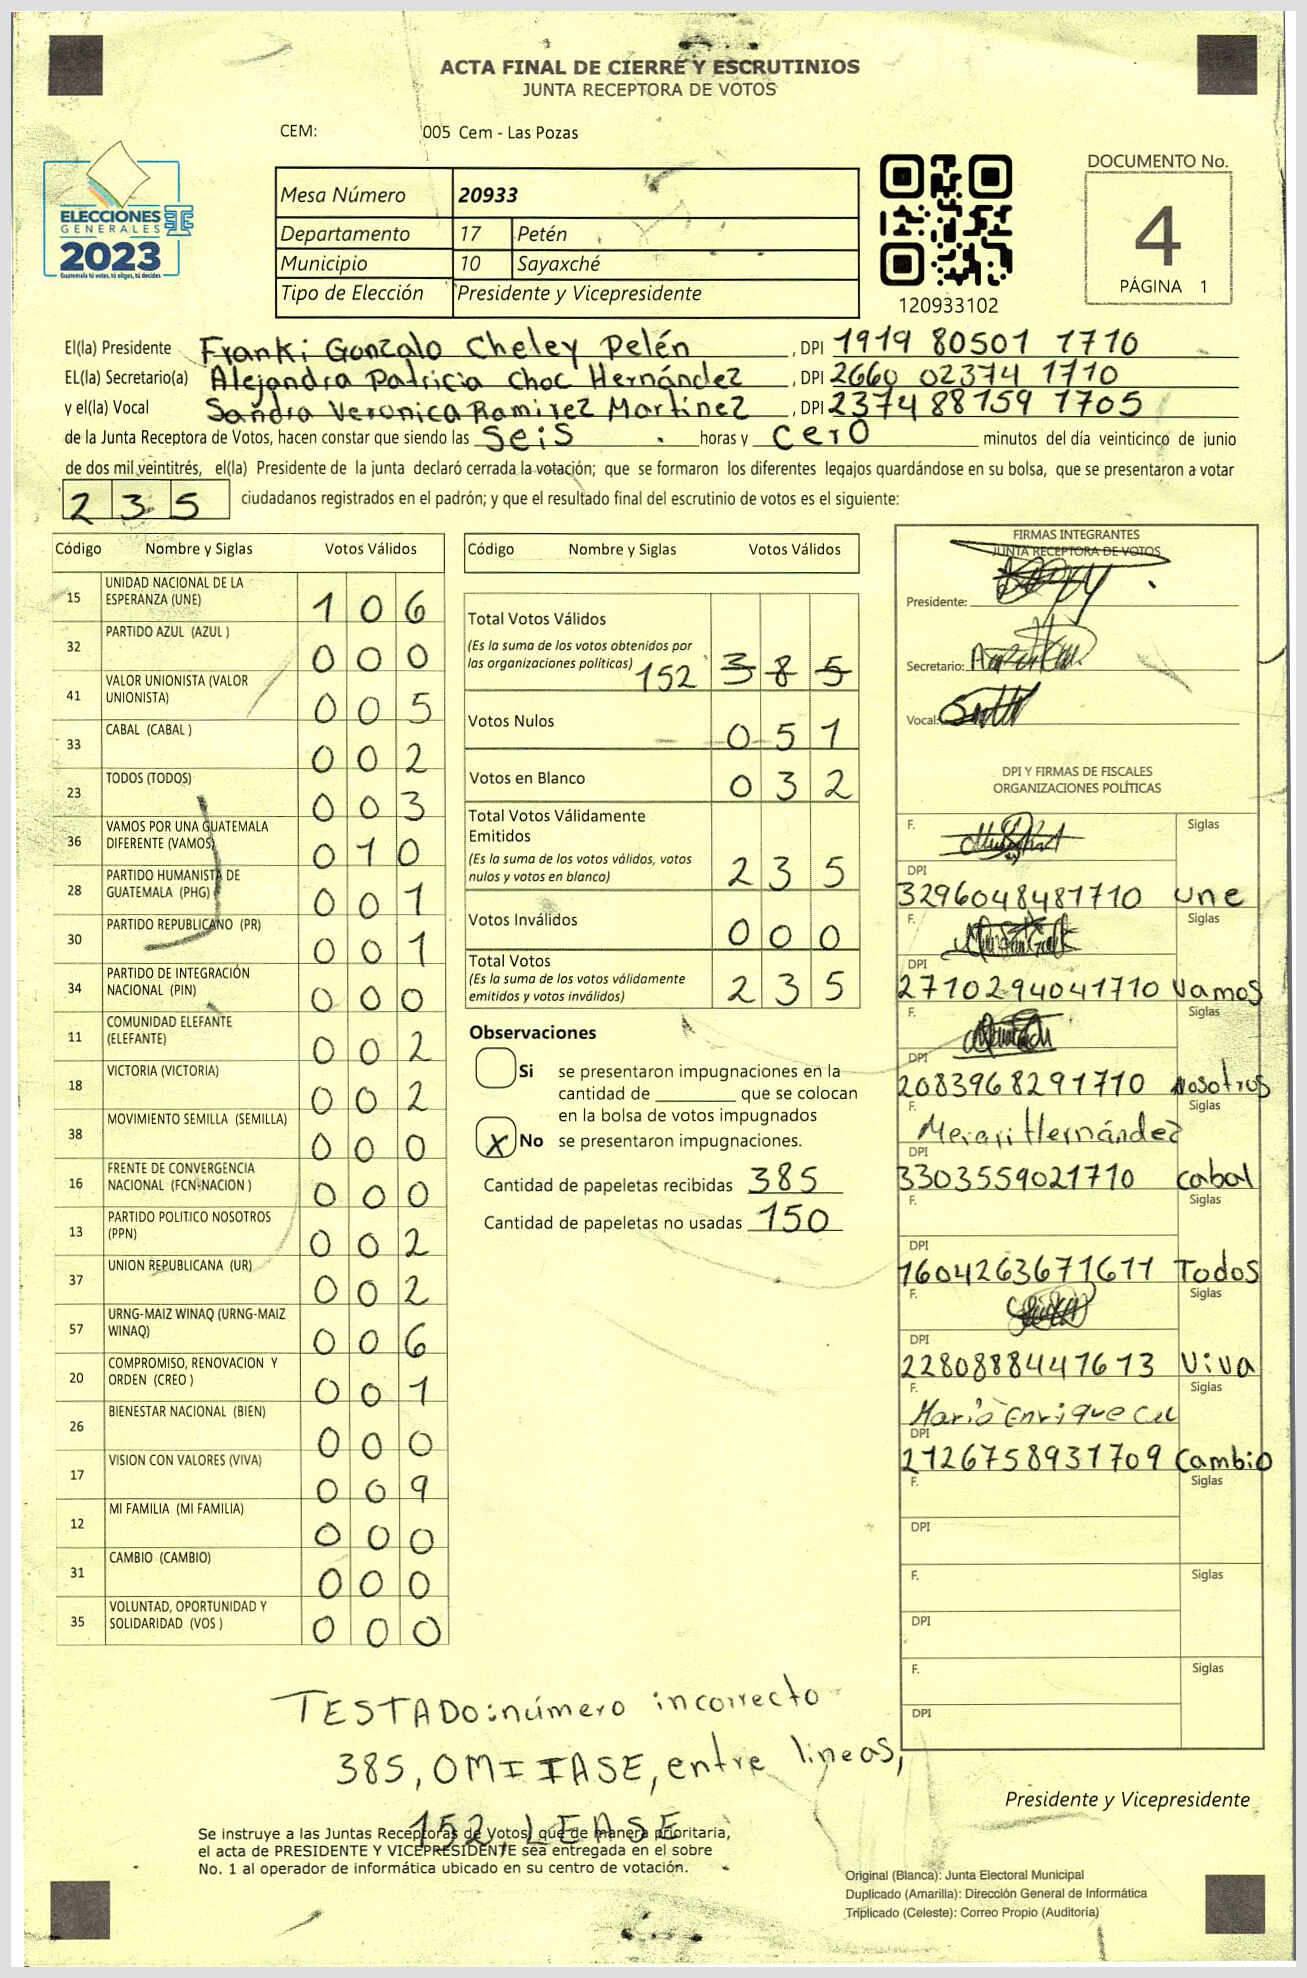 ACTA FINAL DE CIERRE Y ESCRUTINIOS
JUNTA RECEPTORA DE VOTOS
CEM: 005 Cem - Las Pozas
ELECCIONES
GENERALES
2023
Guatemala tú votas, tú eliges, tú decides
Mesa Número 20933
Departamento 17 Petén
Municipio 10 Sayaxché
Tipo de Elección Presidente y Vicepresidente
120933102
DOCUMENTO No.
4
PÁGINA 1
El(la) Presidente Franki Gonzalo Cheley Pelén , DPI 1919 80501 1710
EL(la) Secretario(a) Alejandra Patricia Choc Hernández , DPI 2660 02374 1710
y el(la) Vocal Sandra Veronica Ramirez Martinez , DPI 2374 88159 1705
de la Junta Receptora de Votos, hacen constar que siendo las seis horas y cero minutos del día veinticinco de junio
de dos mil veintitrés, el(la) Presidente de la junta declaró cerrada la votación; que se formaron los diferentes legajos guardándose en su bolsa, que se presentaron a votar
235 ciudadanos registrados en el padrón; y que el resultado final del escrutinio de votos es el siguiente:
Código Nombre y Siglas Votos Válidos
15 UNIDAD NACIONAL DE LA ESPERANZA (UNE) 106
32 PARTIDO AZUL (AZUL ) 000
41 VALOR UNIONISTA (VALOR UNIONISTA) 005
33 CABAL (CABAL ) 002
23 TODOS (TODOS) 003
36 VAMOS POR UNA GUATEMALA DIFERENTE (VAMOS) 010
28 PARTIDO HUMANISTA DE GUATEMALA (PHG) 001
30 PARTIDO REPUBLICANO (PR) 001
34 PARTIDO DE INTEGRACIÓN NACIONAL (PIN) 000
11 COMUNIDAD ELEFANTE (ELEFANTE) 002
18 VICTORIA (VICTORIA) 002
38 MOVIMIENTO SEMILLA (SEMILLA) 000
16 FRENTE DE CONVERGENCIA NACIONAL (FCN-NACION ) 000
13 PARTIDO POLITICO NOSOTROS (PPN) 002
37 UNION REPUBLICANA (UR) 002
57 URNG-MAIZ WINAQ (URNG-MAIZ WINAQ) 006
20 COMPROMISO, RENOVACION Y ORDEN (CREO ) 001
26 BIENESTAR NACIONAL (BIEN) 000
17 VISION CON VALORES (VIVA) 009
12 MI FAMILIA (MI FAMILIA) 000
31 CAMBIO (CAMBIO) 000
35 VOLUNTAD, OPORTUNIDAD Y SOLIDARIDAD (VOS ) 000
Código Nombre y Siglas Votos Válidos
Total Votos Válidos
(Es la suma de los votos obtenidos por
las organizaciones políticas) 152 385
Votos Nulos 051
Votos en Blanco 032
Total Votos Válidamente
Emitidos
(Es la suma de los votos válidos, votos
nulos y votos en blanco) 235
Votos Inválidos 000
Total Votos
(Es la suma de los votos válidamente
emitidos y votos inválidos) 235
Observaciones
Si se presentaron impugnaciones en la
cantidad de ________ que se colocan
en la bolsa de votos impugnados
X No se presentaron impugnaciones.
Cantidad de papeletas recibidas 385
Cantidad de papeletas no usadas 150
FIRMAS INTEGRANTES
JUNTA RECEPTORA DE VOTOS
Presidente:
Secretario:
Vocal:
DPI Y FIRMAS DE FISCALES
ORGANIZACIONES POLÍTICAS
F. Siglas
DPI
3296048481710 une
F. Siglas
DPI
2710294041710 Vamos
F. Siglas
DPI
2083968291710 Nosotros
F. Merari Hernández Siglas
DPI
3303559021710 cabal
F. Siglas
DPI
1604263671611 Todos
F. Siglas
DPI
2280888441613 Viva
F. Mario Enrique Siglas
DPI
2126758931709 Cambio
F. Siglas
DPI
F. Siglas
DPI
F. Siglas
DPI
TESTADO: número incorrecto
385, OMITASE, entre lineas,
152, LEASE
Presidente y Vicepresidente
Se instruye a las Juntas Receptoras de Votos, que de manera prioritaria,
el acta de PRESIDENTE Y VICEPRESIDENTE sea entregada en el sobre
No. 1 al operador de informática ubicado en su centro de votación.
Original (Blanca): Junta Electoral Municipal
Duplicado (Amarilla): Dirección General de Informática
Triplicado (Celeste): Correo Propio (Auditoría)